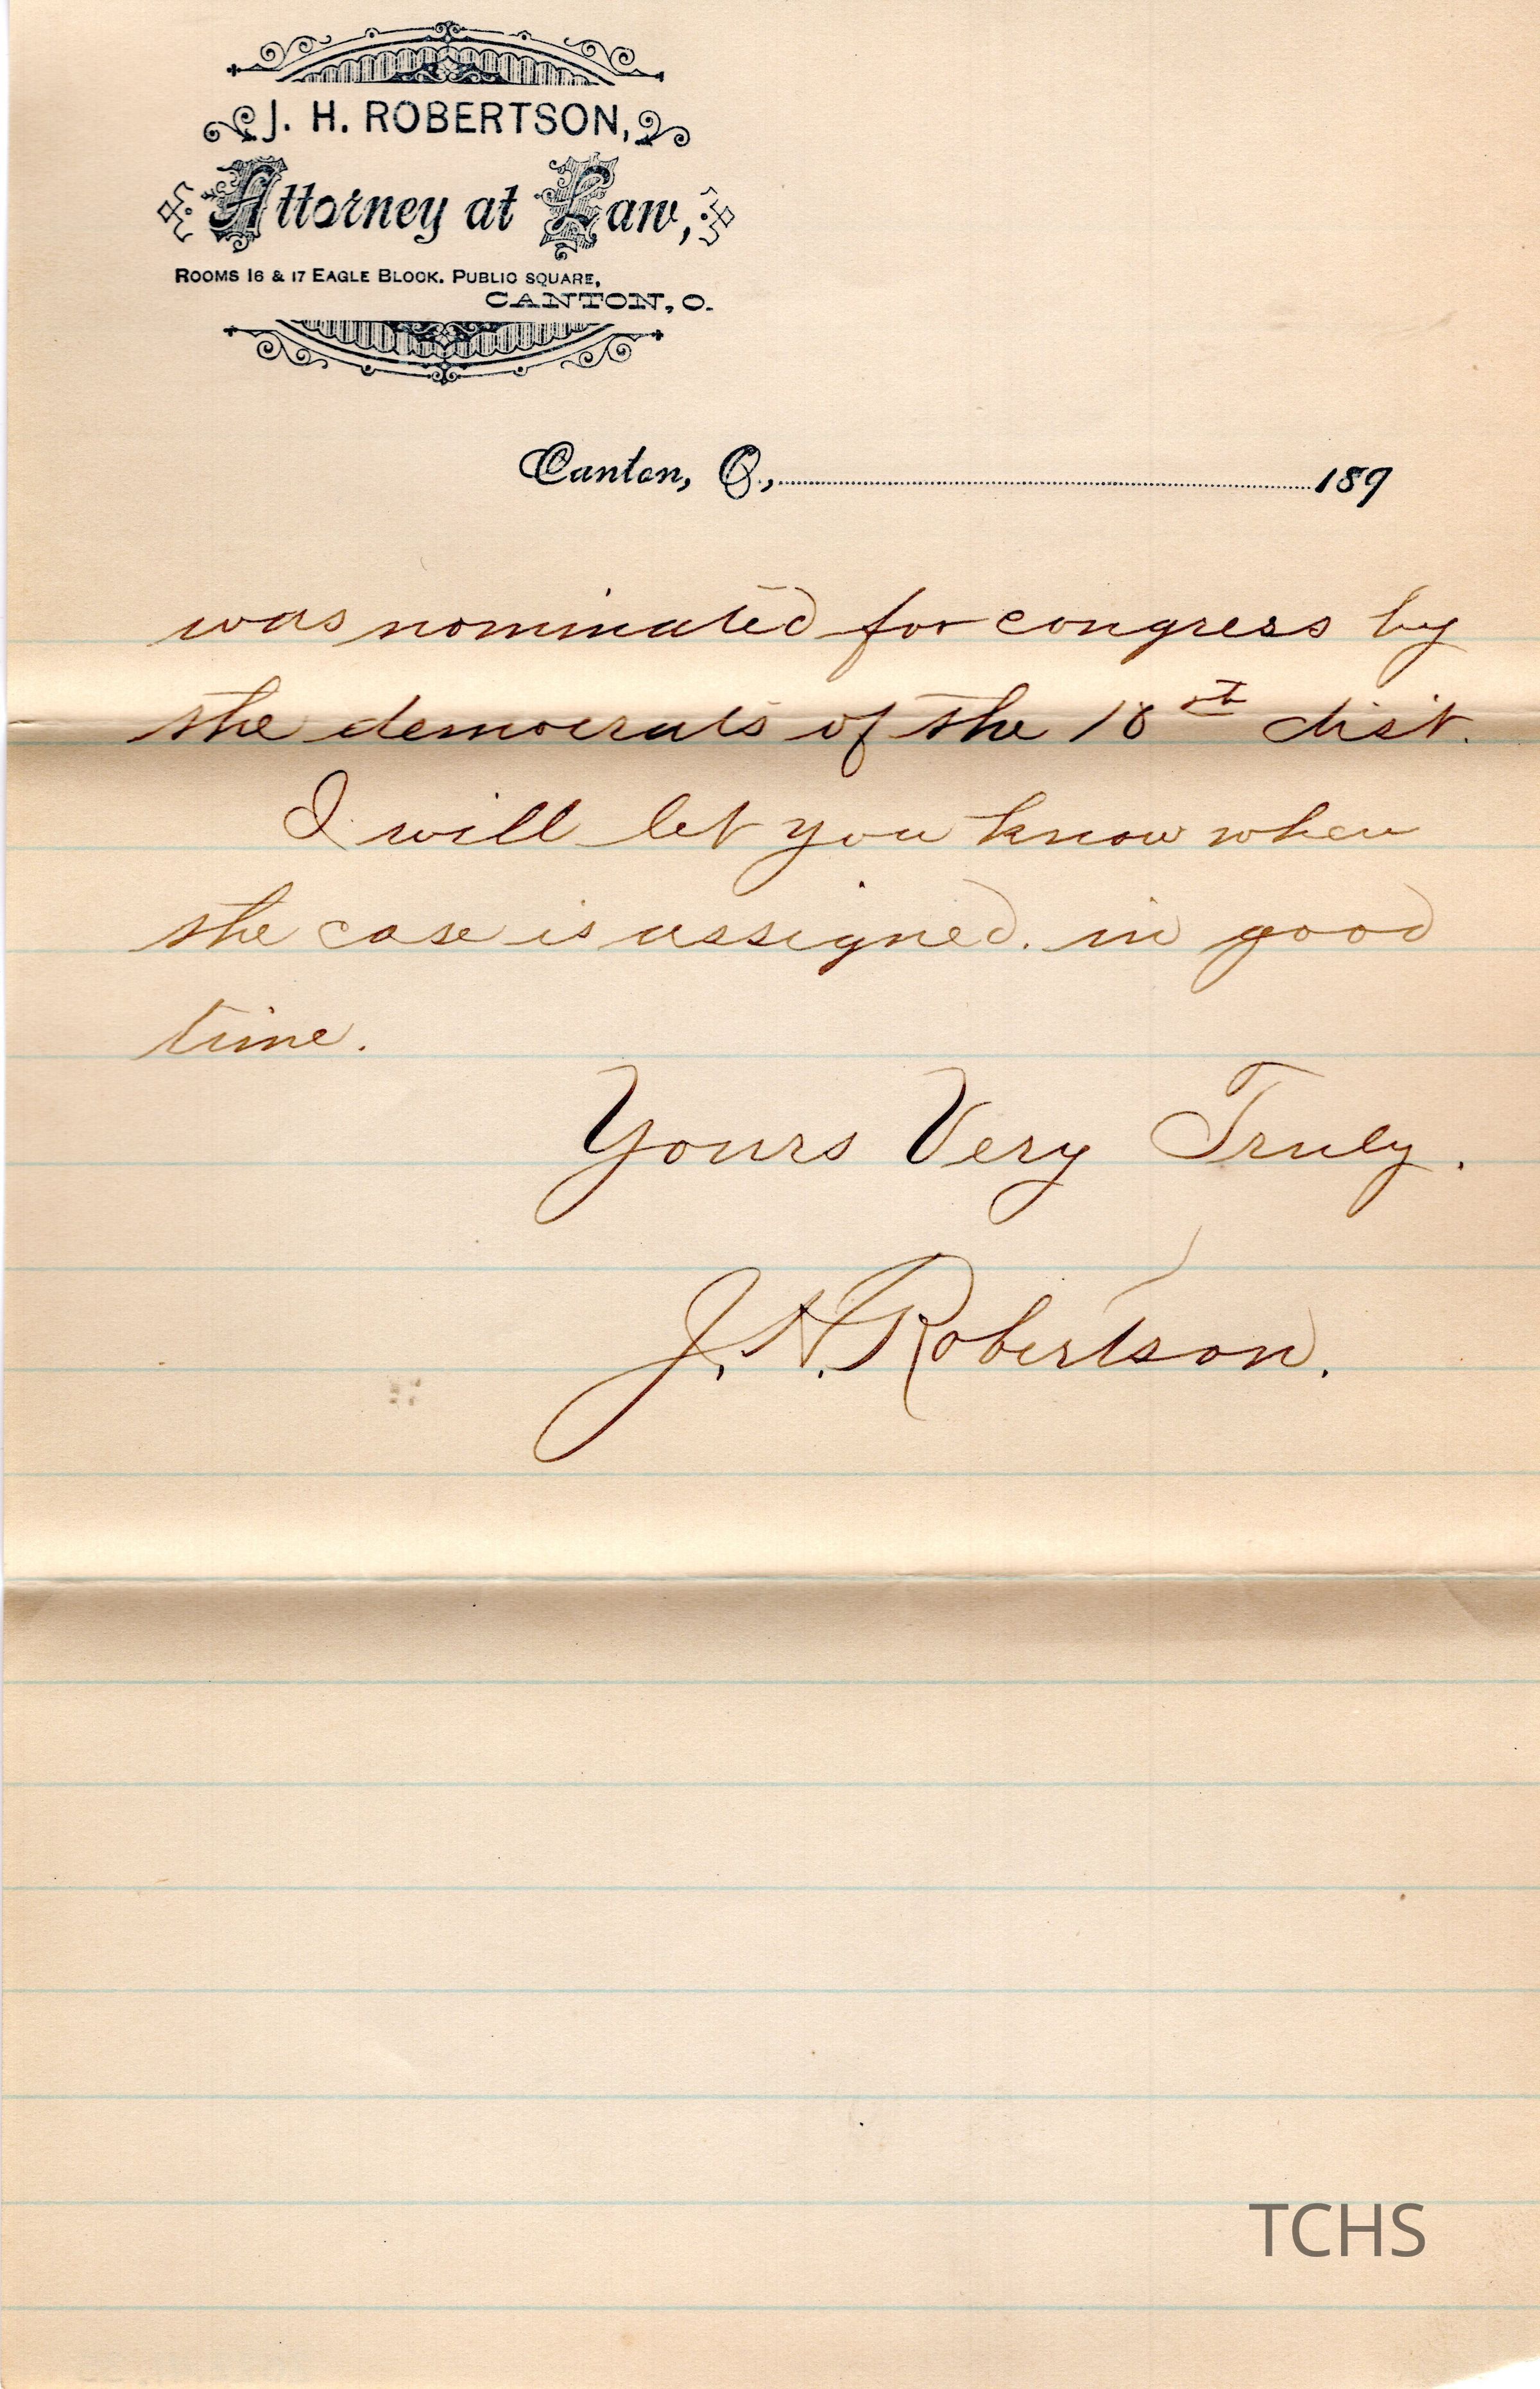 J. H. ROBERTSON,
Attorney at Law,
ROOMS 16 & 17 EAGLE BLOCK. PUBLIC SQUARE,
CANTON, O.
Canton, O., 189
was nominated for congress by
the democrats of the 18th dist.
I will let you know when
the case is assigned. in good
time.
Yours Very Truly.
J. H. Robertson.
TCHS